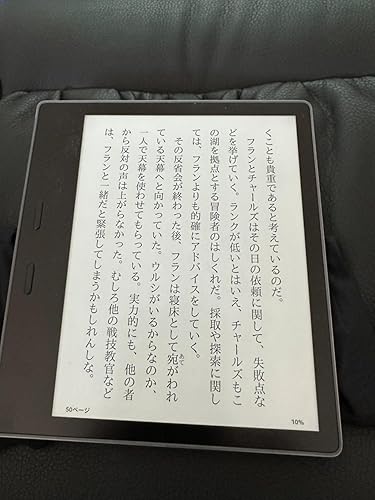 くことも貴重であると考えているのだ。
フランとチャールズはその日の依頼に関して、失敗点な
どを挙げていく。ランクが低いとはいえ、チャールズもこ
の湖を拠点とする冒険者のはしくれだ。採取や探索に関し
ては、フランよりも的確にアドバイスをしていく。
その反省会が終わった後、フランは寝床として宛がわれ
ている天幕へと向かっていた。ウルシがいるからなのか、
一人で天幕を使わせてもらっている。実力的にも、他の者
から反対の声は上がらなかった。むしろ他の戦技教官など
は、フランと一緒だと緊張してしまうかもしれんしな。
あて
50ページ
10%